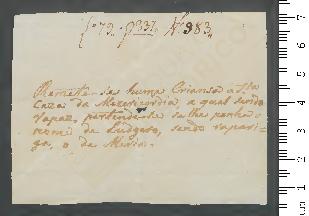 f. 79. p. 337. N. 983
Remete-se huma Criansa a S.ta
Caza da Mezericordia, a qual sendo
rapaz, pertende-se se lhe ponha o
nome de Ludgero, sendo rapari-
ga, o de Maria.